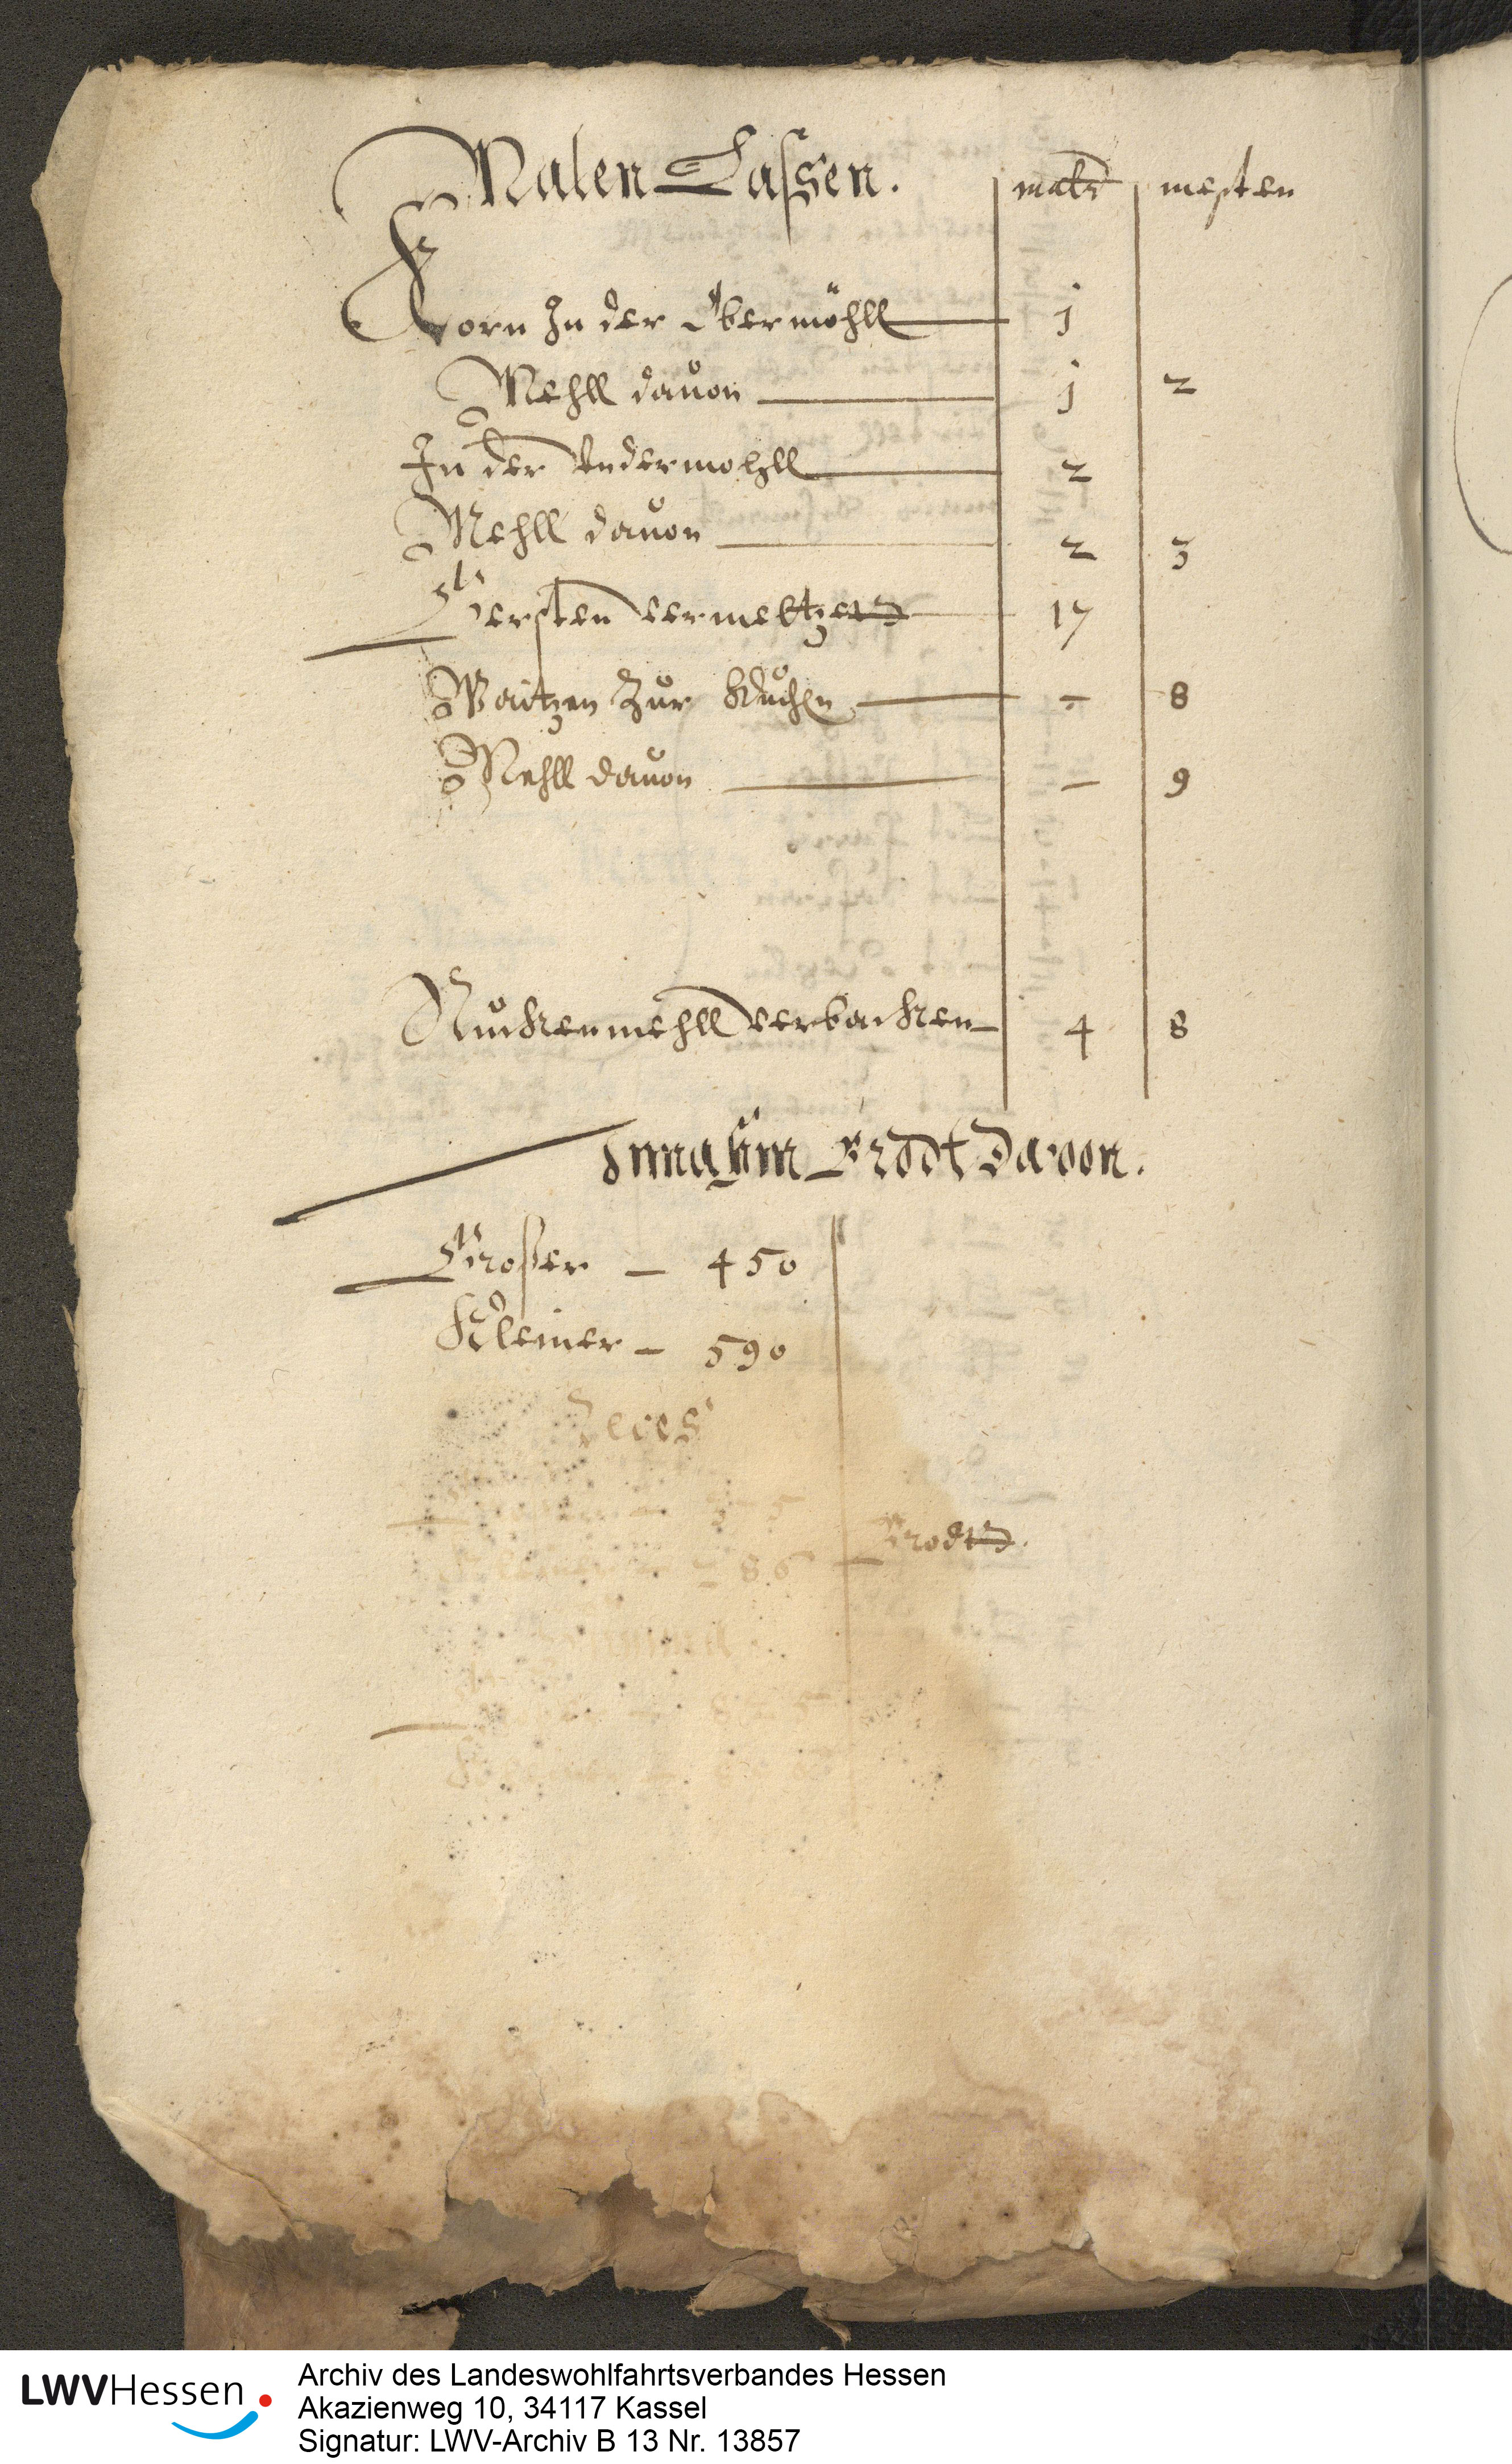 Malen Laßen. maltr mesten
Korn In der Obermöhll — j
Mehll dauon — j 2
In der Vndermohll — 2
Mehll dauon — 2 3
Gersten vermeltzett — 17
Waitzen Zur Kuchen — - 8
Mehll dauon — - 9
Ruckenmehll verbacken — 4 8
Innahm Brodt Davon.
Großer — 450
Kleiner — 590
Reces
Brodtt.
86
LWVHessen
Archiv des Landeswohlfahrtsverbandes Hessen
Akazienweg 10, 34117 Kassel
Signatur: LWV-Archiv B 13 Nr. 13857